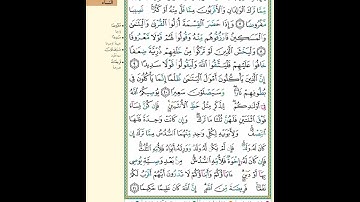 مِّمَّا تَرَكَ الْوَالِدَانِ وَالْأَقْرَبُونَ مِمَّا قَلَّ مِنْهُ أَوْ كَثُرَ ۚ نَصِيبًا
مَّفْرُوضًا ۝٧ وَإِذَا حَضَرَ الْقِسْمَةَ أُولُو الْقُرْبَىٰ وَالْيَتَامَىٰ
وَالْمَسَاكِينُ فَارْزُقُوهُم مِّنْهُ وَقُولُوا لَهُمْ قَوْلًا مَّعْرُوفًا
۝٨ وَلْيَخْشَ الَّذِينَ لَوْ تَرَكُوا مِنْ خَلْفِهِمْ ذُرِّيَّةً ضِعَافًا
خَافُوا عَلَيْهِمْ فَلْيَتَّقُوا اللَّهَ وَلْيَقُولُوا قَوْلًا سَدِيدًا ۝٩
إِنَّ الَّذِينَ يَأْكُلُونَ أَمْوَالَ الْيَتَامَىٰ ظُلْمًا إِنَّمَا يَأْكُلُونَ فِي
بُطُونِهِمْ نَارًا ۖ وَسَيَصْلَوْنَ سَعِيرًا ۝١٠ يُوصِيكُمُ اللَّهُ
فِي أَوْلَادِكُمْ ۖ لِلذَّكَرِ مِثْلُ حَظِّ الْأُنثَيَيْنِ ۚ فَإِن كُنَّ نِسَاءً
فَوْقَ اثْنَتَيْنِ فَلَهُنَّ ثُلُثَا مَا تَرَكَ ۖ وَإِن كَانَتْ وَاحِدَةً فَلَهَا
النِّصْفُ ۚ وَلِأَبَوَيْهِ لِكُلِّ وَاحِدٍ مِّنْهُمَا السُّدُسُ مِمَّا تَرَكَ إِن
كَانَ لَهُ وَلَدٌ ۚ فَإِن لَّمْ يَكُن لَّهُ وَلَدٌ وَوَرِثَهُ أَبَوَاهُ فَلِأُمِّهِ الثُّلُثُ ۚ
فَإِن كَانَ لَهُ إِخْوَةٌ فَلِأُمِّهِ السُّدُسُ ۚ مِن بَعْدِ وَصِيَّةٍ يُوصِي
بِهَا أَوْ دَيْنٍ ۗ آبَاؤُكُمْ وَأَبْنَاؤُكُمْ لَا تَدْرُونَ أَيُّهُمْ أَقْرَبُ لَكُمْ
نَفْعًا ۚ فَرِيضَةً مِّنَ اللَّهِ ۗ إِنَّ اللَّهَ كَانَ عَلِيمًا حَكِيمًا ۝١١